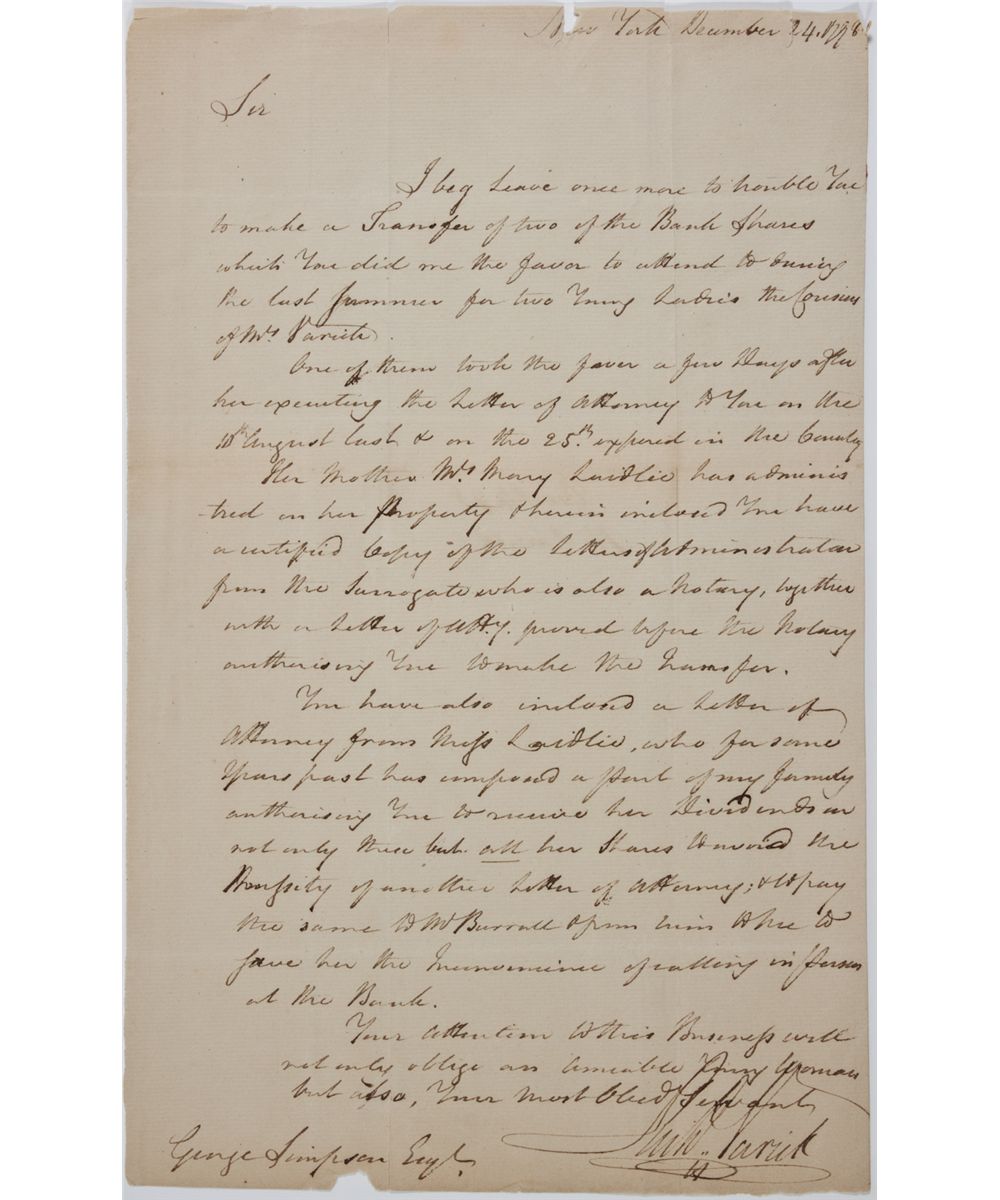 New York December 24. 1798.
Sir
I beg Leave once more to trouble You
to make a Transfer of two of the Bank Shares
which You did me the favor to attend to during
the last Summer for two Young Ladies the Cousins
of Mrs Varick.
One of them took the fever a few Days after
her executing the Letter of Attorney to You on the
10th August last & on the 25th expired in the Country
Her Mother Mrs Mary Laidlie has adminis
tred on her Property & herein inclosed You have
a certified Copy of the Letters of Administration
from the Surrogate who is also a Notary, together
with a Letter of Atty. proved before the Notary
authorising You to make the Transfer.
You have also inclosed a Letter of
Attorney from Miss Laidlie, who for some
Years past has composed a part of my family
authorising You to receive her Dividends on
not only these but all her Shares to avoid the
Necessity of another Letter of Attorney; & to pay
the same to Mr Burrall & from him to me to
save her the Inconvenience of calling in person
at the Bank.
Your Attention to this Business will
not only oblige an amiable Young Woman
but also, Your most Obed Servant
Richd. Varick
George Simpson Esqr.